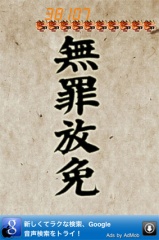 無罪放免
新しくてラクな検索、Google
音声検索をトライ！
Ads by AdMob